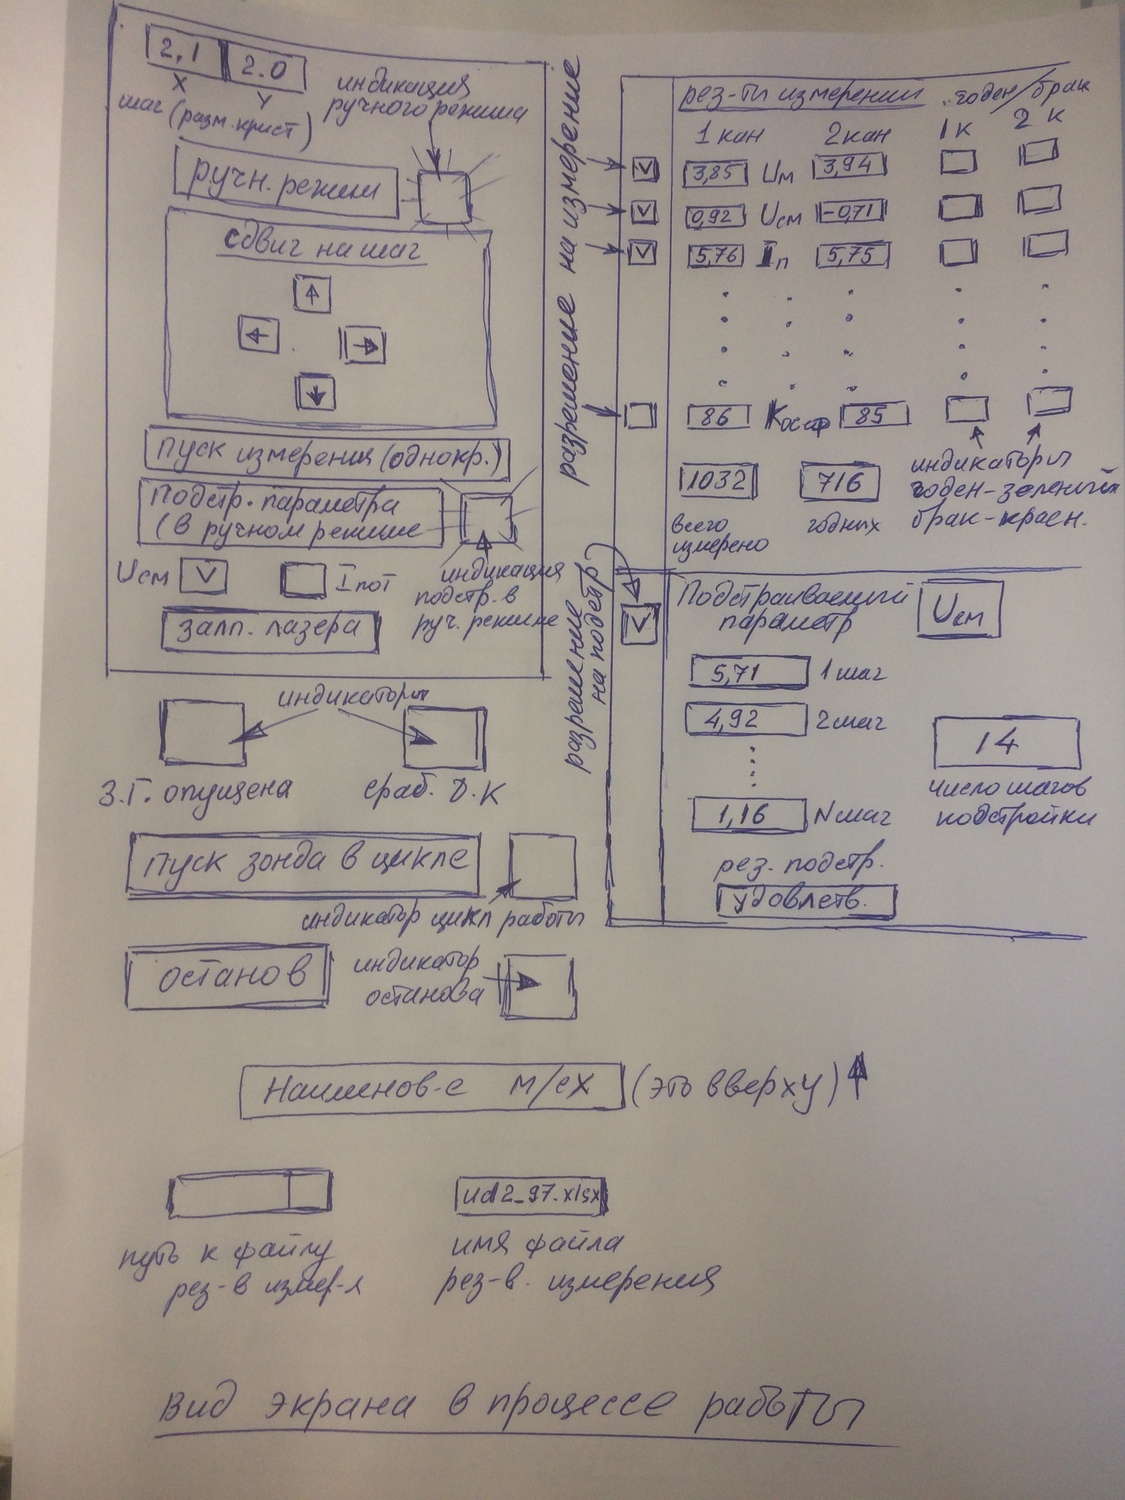 2,1 2.0
X Y
шаг (разм. крист)
индикация
ручного режима
ручн. режим
сдвиг на шаг
↑
← →
↓
пуск измерения (однокр.)
Подстр. параметра
(в ручном режиме
Uсм V Iпот
индикация
подстр. в
руч. режиме
залп. лазера
индикаторы
З.Г. опущена сраб. Д.К
пуск зонда в цикле
индикатор цикл работы
останов
индикатор
останова
разрешение на измерение
рез-ты измерений годен/брак
1 кан 2 кан 1 к 2 к
V 3,85 Uм 3,94
V 0,92 Uсм -0,71
V 5,76 Iп 5,75
86 Косф 85
1032 716
всего
измерено
годных
индикаторы
годен-зеленый
брак-красн.
разрешение
на подстр
V
Подстраиваемый
параметр
Uсм
5,71 1 шаг
4,92 2 шаг
1,16 N шаг
14
число шагов
подстройки
рез. подстр.
удовлетв.
Наименов-е м/сх (это вверху) ↑
ud2_97.xlsx
путь к файлу
рез-в измер-я
имя файла
рез-в. измерения
Вид экрана в процессе работы